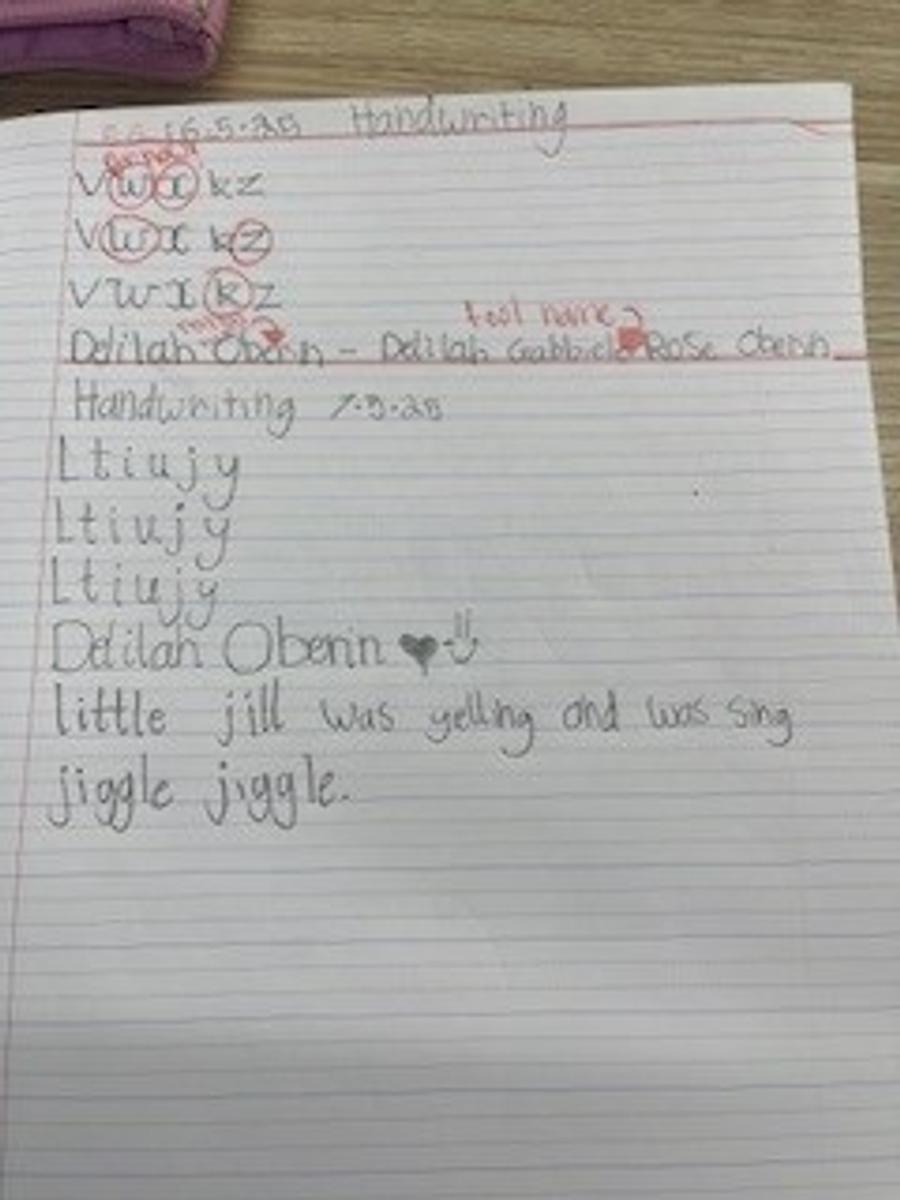 16.5.25 Handwriting
v w x k z
v w x k z
v w x k z
name
Delilah Oberin - Delilah Gabbriel Rose Oberin
Handwriting 7.5.25
L t i u j y
L t i u j y
L t i u j y
Delilah Oberin ♥
little jill was yelling and was sing
jiggle jiggle.